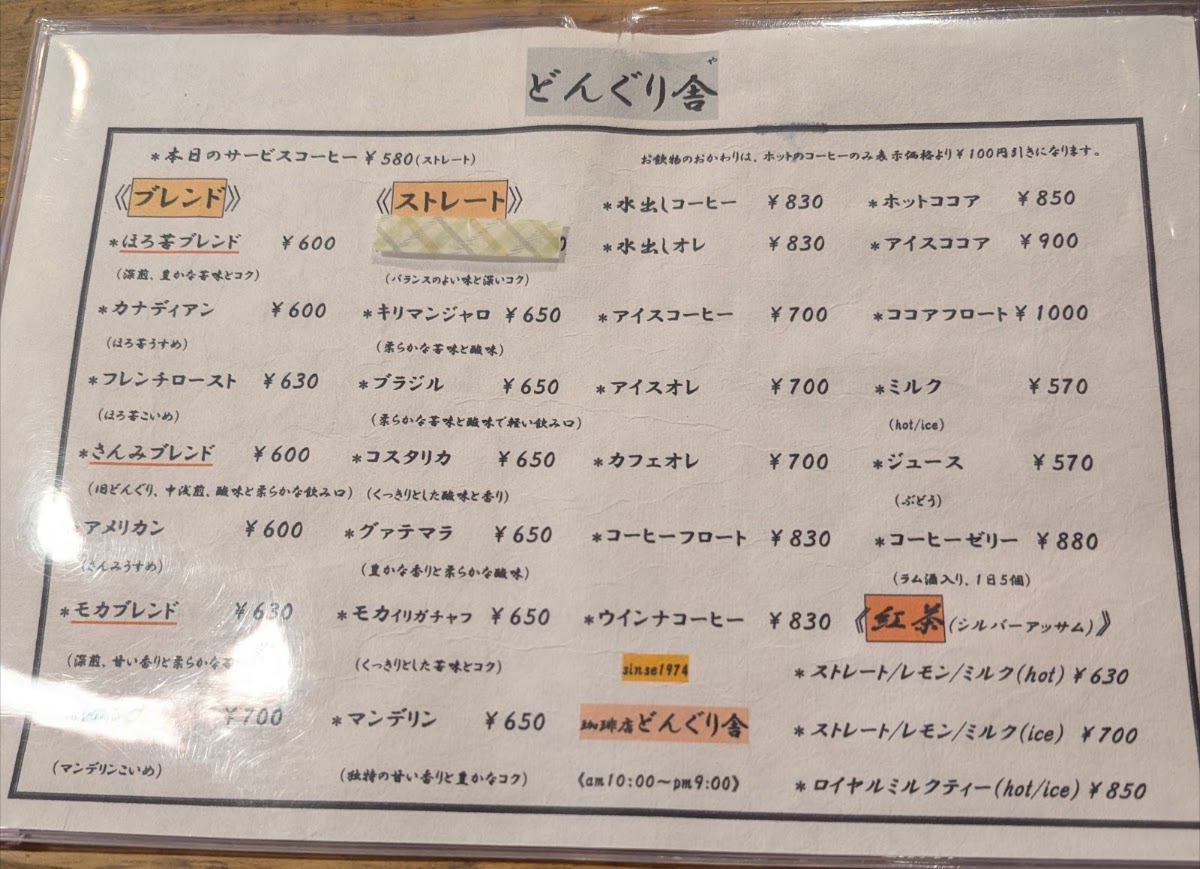 や
どんぐり舎
*本日のサービスコーヒー ¥580(ストレート)
お飲物のおかわりは、ホットのコーヒーのみ表示価格より¥100円引きになります。
《ブレンド》
*ほろ苦ブレンド ¥600
(深煎、豊かな苦味とコク)
*カナディアン ¥600
(ほろ苦うすめ)
*フレンチロースト ¥630
(ほろ苦こいめ)
*さんみブレンド ¥600
(旧どんぐり、中浅煎、酸味と柔らかな飲み口)
*アメリカン ¥600
(さんみうすめ)
*モカブレンド ¥630
(深煎、甘い香りと柔らかな苦
¥700
(マンデリンこいめ)
《ストレート》
(バランスのよい味と深いコク)
*キリマンジャロ ¥650
(柔らかな苦味と酸味)
*ブラジル ¥650
(柔らかな苦味と酸味で軽い飲み口)
*コスタリカ ¥650
(くっきりとした酸味と香り)
*グァテマラ ¥650
(豊かな香りと柔らかな酸味)
*モカイリガチャフ ¥650
(くっきりとした苦味とコク)
*マンデリン ¥650
(独特の甘い香りと豊かなコク)
*水出しコーヒー ¥830
*水出しオレ ¥830
*アイスコーヒー ¥700
*アイスオレ ¥700
*カフェオレ ¥700
*コーヒーフロート ¥830
*ウインナコーヒー ¥830
sinse1974
珈琲店どんぐり舎
《am10:00〜pm9:00》
*ホットココア ¥850
*アイスココア ¥900
*ココアフロート ¥1000
*ミルク ¥570
(hot/ice)
*ジュース ¥570
(ぶどう)
*コーヒーゼリー ¥880
(ラム酒入り、1日5個)
《紅茶(シルバーアッサム)》
*ストレート/レモン/ミルク(hot) ¥630
*ストレート/レモン/ミルク(ice) ¥700
*ロイヤルミルクティー(hot/ice) ¥850